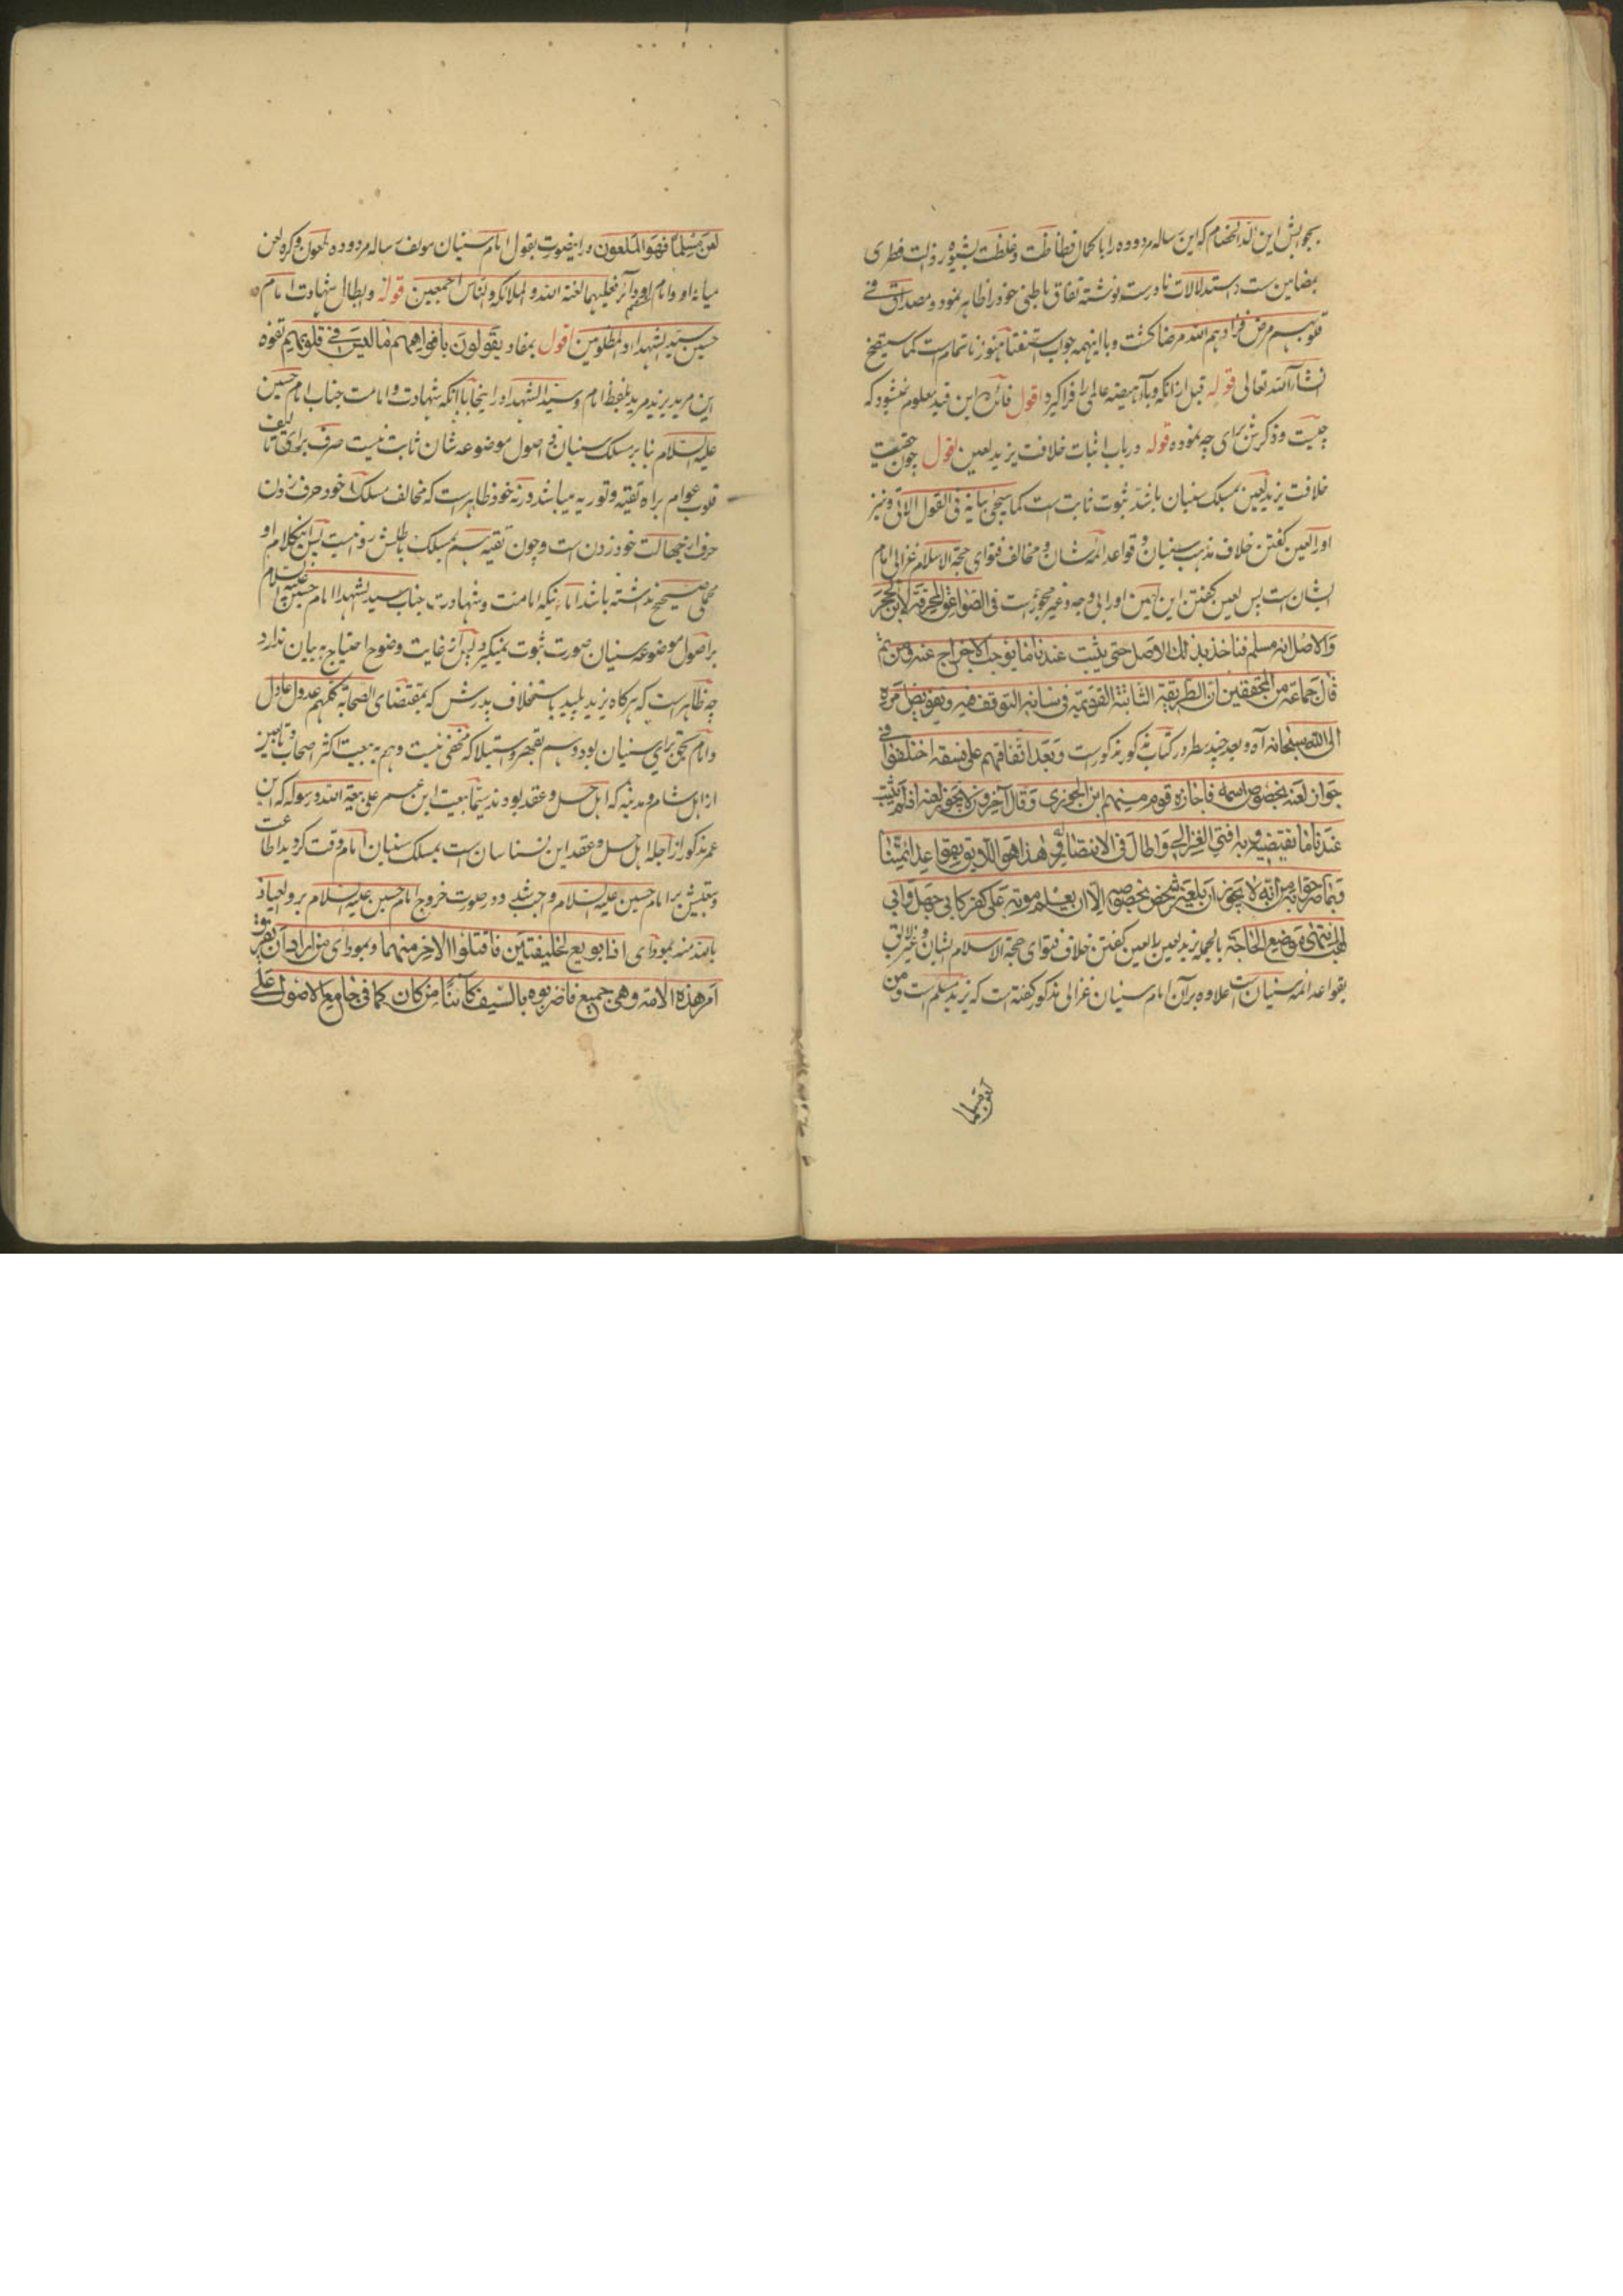 بجوابش این الد الخصام که این رساله مردوده را با کمال فظاظت و غلظت بشیوه رذالت فطری
بمضامین سست و استدلالات نادرست نوشته نفاق باطنی خود را ظاهر نمود و مصداق فی
قلوبهم مرض فزادهم الله مرضا کشت و با اینهمه جواب استفتا هنوز ناتمامست کما سیتضح
انشاء الله تعالی قوله قبل از انکه وبا آنا بیضه عالمی را فرا کیرد اقول فائده این قید معلوم نمیشود که
چیست و ذکرش برای چه نموده قوله در باب اثبات خلافت یزید لعین اقول چون حقیقت
خلافت یزید لعین بمسلک سنیان باشد ثبوت ثابت است کما سیجئ بیانه فی القول الاتی و نیز
او را لعین کفتن خلاف مذهب سنیان و قواعد ائمه شان و مخالف فتوای حجة الاسلام غزالی امام
ایشان است پس لعین کفتن این او را بی وجه و غیر مجوز است فی الصواعق المحرقة لابن الحجر
والاصل انه مسلم فناخذ بذلك الاصل حتی یثبت عندنا ما یوجب الاخراج عنه ومن ثم
قال جماعة من المحققین ان الطریقة الثابتة القویمة فی شانه التوقف فیه و تفویض امره
الی الله سبحانه آه و بعد چند سطر در کتاب مذکور مذکورست و بعد اتفاقهم علی فسقه اختلفوا فی
جواز لعنه بخصوص اسمه فاجازه قوم منهم ابن الجوزی و قال آخرون لا یجوز لعنه اذ لم یثبت
عندنا ما یقتضیه و به افتی الغزالی و اطال فی الانتصار له و هذا هو اللایق بقواعد ائمتنا
و بما صرحوا به من انه لا یجوز ان یلعن شخص بخصوصه الا ان یعلم موته علی الکفر کابی جهل و ابی
لهب انتهی موضع الحاجة بالجمله یزید لعین را لعین کفتن خلاف فتوای حجة الاسلام ایشان و غیر لائق
بقواعد ائمه سنیان است علاوه بر آن امام سنیان غزالی مذکور کفته است که یزید مسلم است و من
لعن مسلما
لعن مسلما فهو الملعون و در اینصورت بقول امام سنیان مولف رساله مردوده ملعون و کره لعن
میانه او و امام او دائر فعلیهما لعنة الله و الملائکة و الناس اجمعین قوله و ابطال شهادت امام
حسین سید الشهداء و المظلومین اقول بمفاد یقولون بافواههم ما لیس فی قلوبهم تفوه
این مرید یزید مرید بلفظ امام و سید الشهداء در اینجا با آنکه شهادت و امامت جناب امام حسین
علیه السلام بنا بر مسلک سنیان و اصول موضوعه شان ثابت نیست صرف برای تالیف
قلوب عوام براه تقیه و توریه میباشد ورنه خود ظاهر است که مخالف مسلک خود حرف زدن
حرف از جهالت خود زدن است و چون تقیه هم بمسلک باطلش روا نیست پس اینکلام او
محملی صحیح نداشته باشد اما اینکه امامت و شهادت جناب سید الشهدا امام حسین علیه السلام
بر اصول موضوعه سنیان صورت ثبوت نمیکیرد پس از غایت وضوح احتیاج به بیان ندارد
چه ظاهر است که هرکاه یزید پلید باستخلاف پدرش که بمقتضای الصحابة کلهم عدول عادل
و امام بحق برای سنیان بود و هم بقهر و استیلا که مخفی نیست و هم به بیعت اکثر اصحاب و تابعین
از اهل شام و مدینه که اهل حل و عقد بودند سیما بیعت ابن عمر علی بیعة الله و رسوله که ابن
عمر مذکور از اجله اهل حل و عقد این نسناسان است بمسلک سنیان امام وقت کردید اطاعت
و بیعتش بر امام حسین علیه السلام واجب شد و در صورت خروج امام حسین علیه السلام برو العیاذ
بالله منه بمودای اذا بویع لخلیفتین فاقتلوا الاخر منهما و بمودای من اراد ان یفرق
امر هذه الامة و هی جمیع فاضربوه بالسیف کائنا من کان کما فی جامع الاصول علی